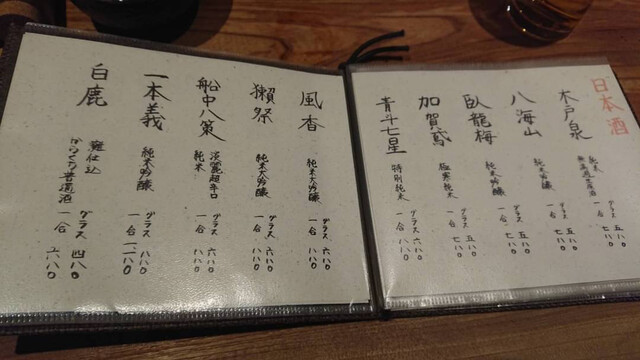 日本酒
木戸泉
純米
無濾過生原酒
グラス 五八〇
一合 七八〇
八海山
純米吟醸
グラス 五八〇
一合 七八〇
臥龍梅
純米吟醸
グラス 五八〇
一合 七八〇
加賀鳶
極寒純米
グラス 五八〇
一合 七八〇
青斗七星
特別純米
グラス 六八〇
一合 八八〇
風香
純米大吟醸
グラス 六八〇
一合 八八〇
獺祭
純米大吟醸
グラス 六八〇
一合 八八〇
船中八策
淡麗超辛口
純米
グラス 六八〇
一合 八八〇
一本義
純米吟醸
グラス 八八〇
一合 一一八〇
白鹿
灘仕込
からくち普通酒
グラス 四八〇
一合 六八〇